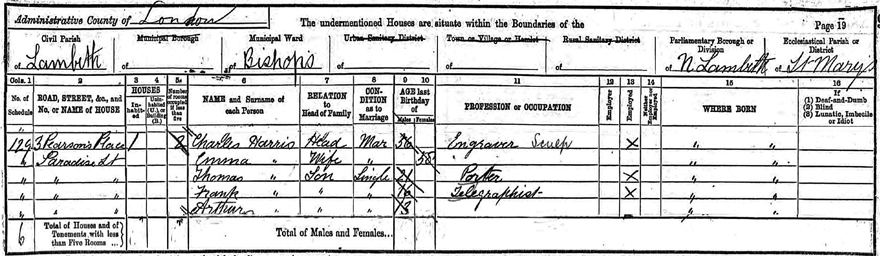 Administrative County of London
The undermentioned Houses are situate within the Boundaries of the
Page 19
Civil Parish
of Lambeth
Municipal Borough
of
Municipal Ward
of Bishops
Urban Sanitary District
of
Town or Village or Hamlet
of
Rural Sanitary District
of
Parliamentary Borough or Division
of N. Lambeth
Ecclesiastical Parish or District
of St Mary's
Cols. 1 2 3 4 5 6 7 8 9 10 11 12 13 14 15 16
No. of Schedule
ROAD, STREET, &c., and No. or NAME of HOUSE
HOUSES
Inhabited
Uninhabited (U.), or Building (B.)
Number of rooms occupied if less than five
NAME and Surname of each Person
RELATION to Head of Family
CONDITION as to Marriage
AGE last Birthday of
Males
Females
PROFESSION or OCCUPATION
Employer
Employed
Neither Employer nor Employed
WHERE BORN
If
(1) Deaf-and-Dumb
(2) Blind
(3) Lunatic, Imbecile or Idiot
129 3 Pearson's Place 1 2 Charles Harris Head Mar 56 Engraver X " "
" Paradise St Emma " Wife " 58 " "
" " Thomas " Son Single 21 Porter X " "
" " Frank " " " 16 Telegraphist X " "
" " Arthur " " " 13 " "
6 Total of Houses and of Tenements with less than Five Rooms
Total of Males and Females...